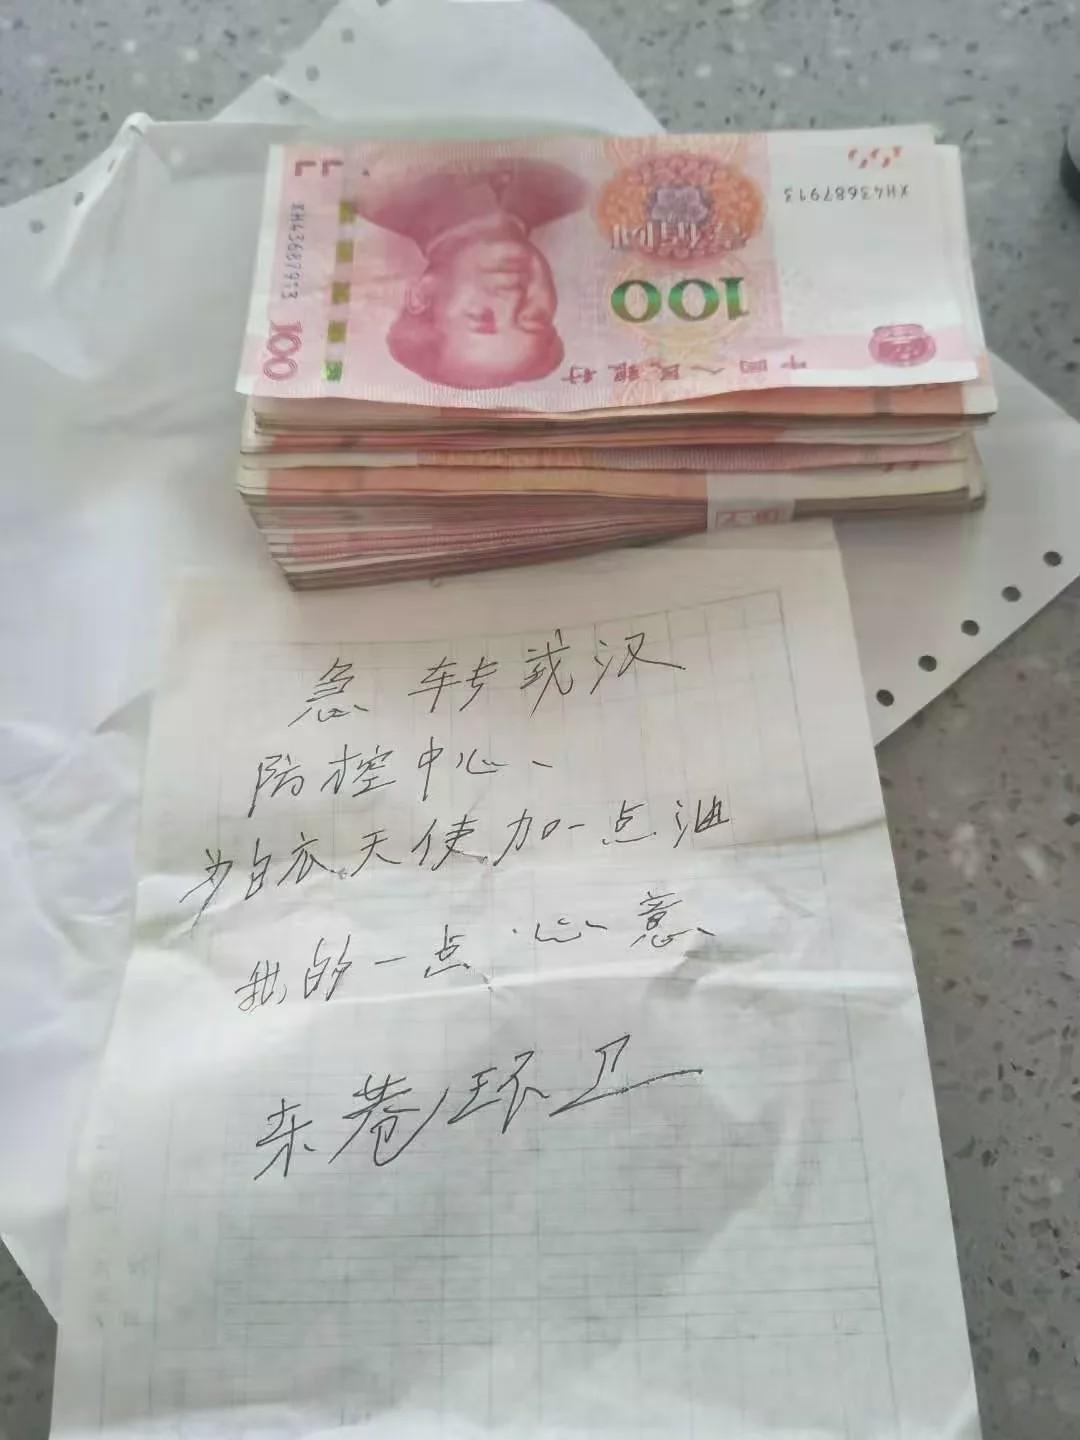 XH43687913
XH43687913
100
壹佰圆
100
中国人民银行
急 转武汉
防控中心、
为白衣天使加一点油
我的一点心意
东巷环卫